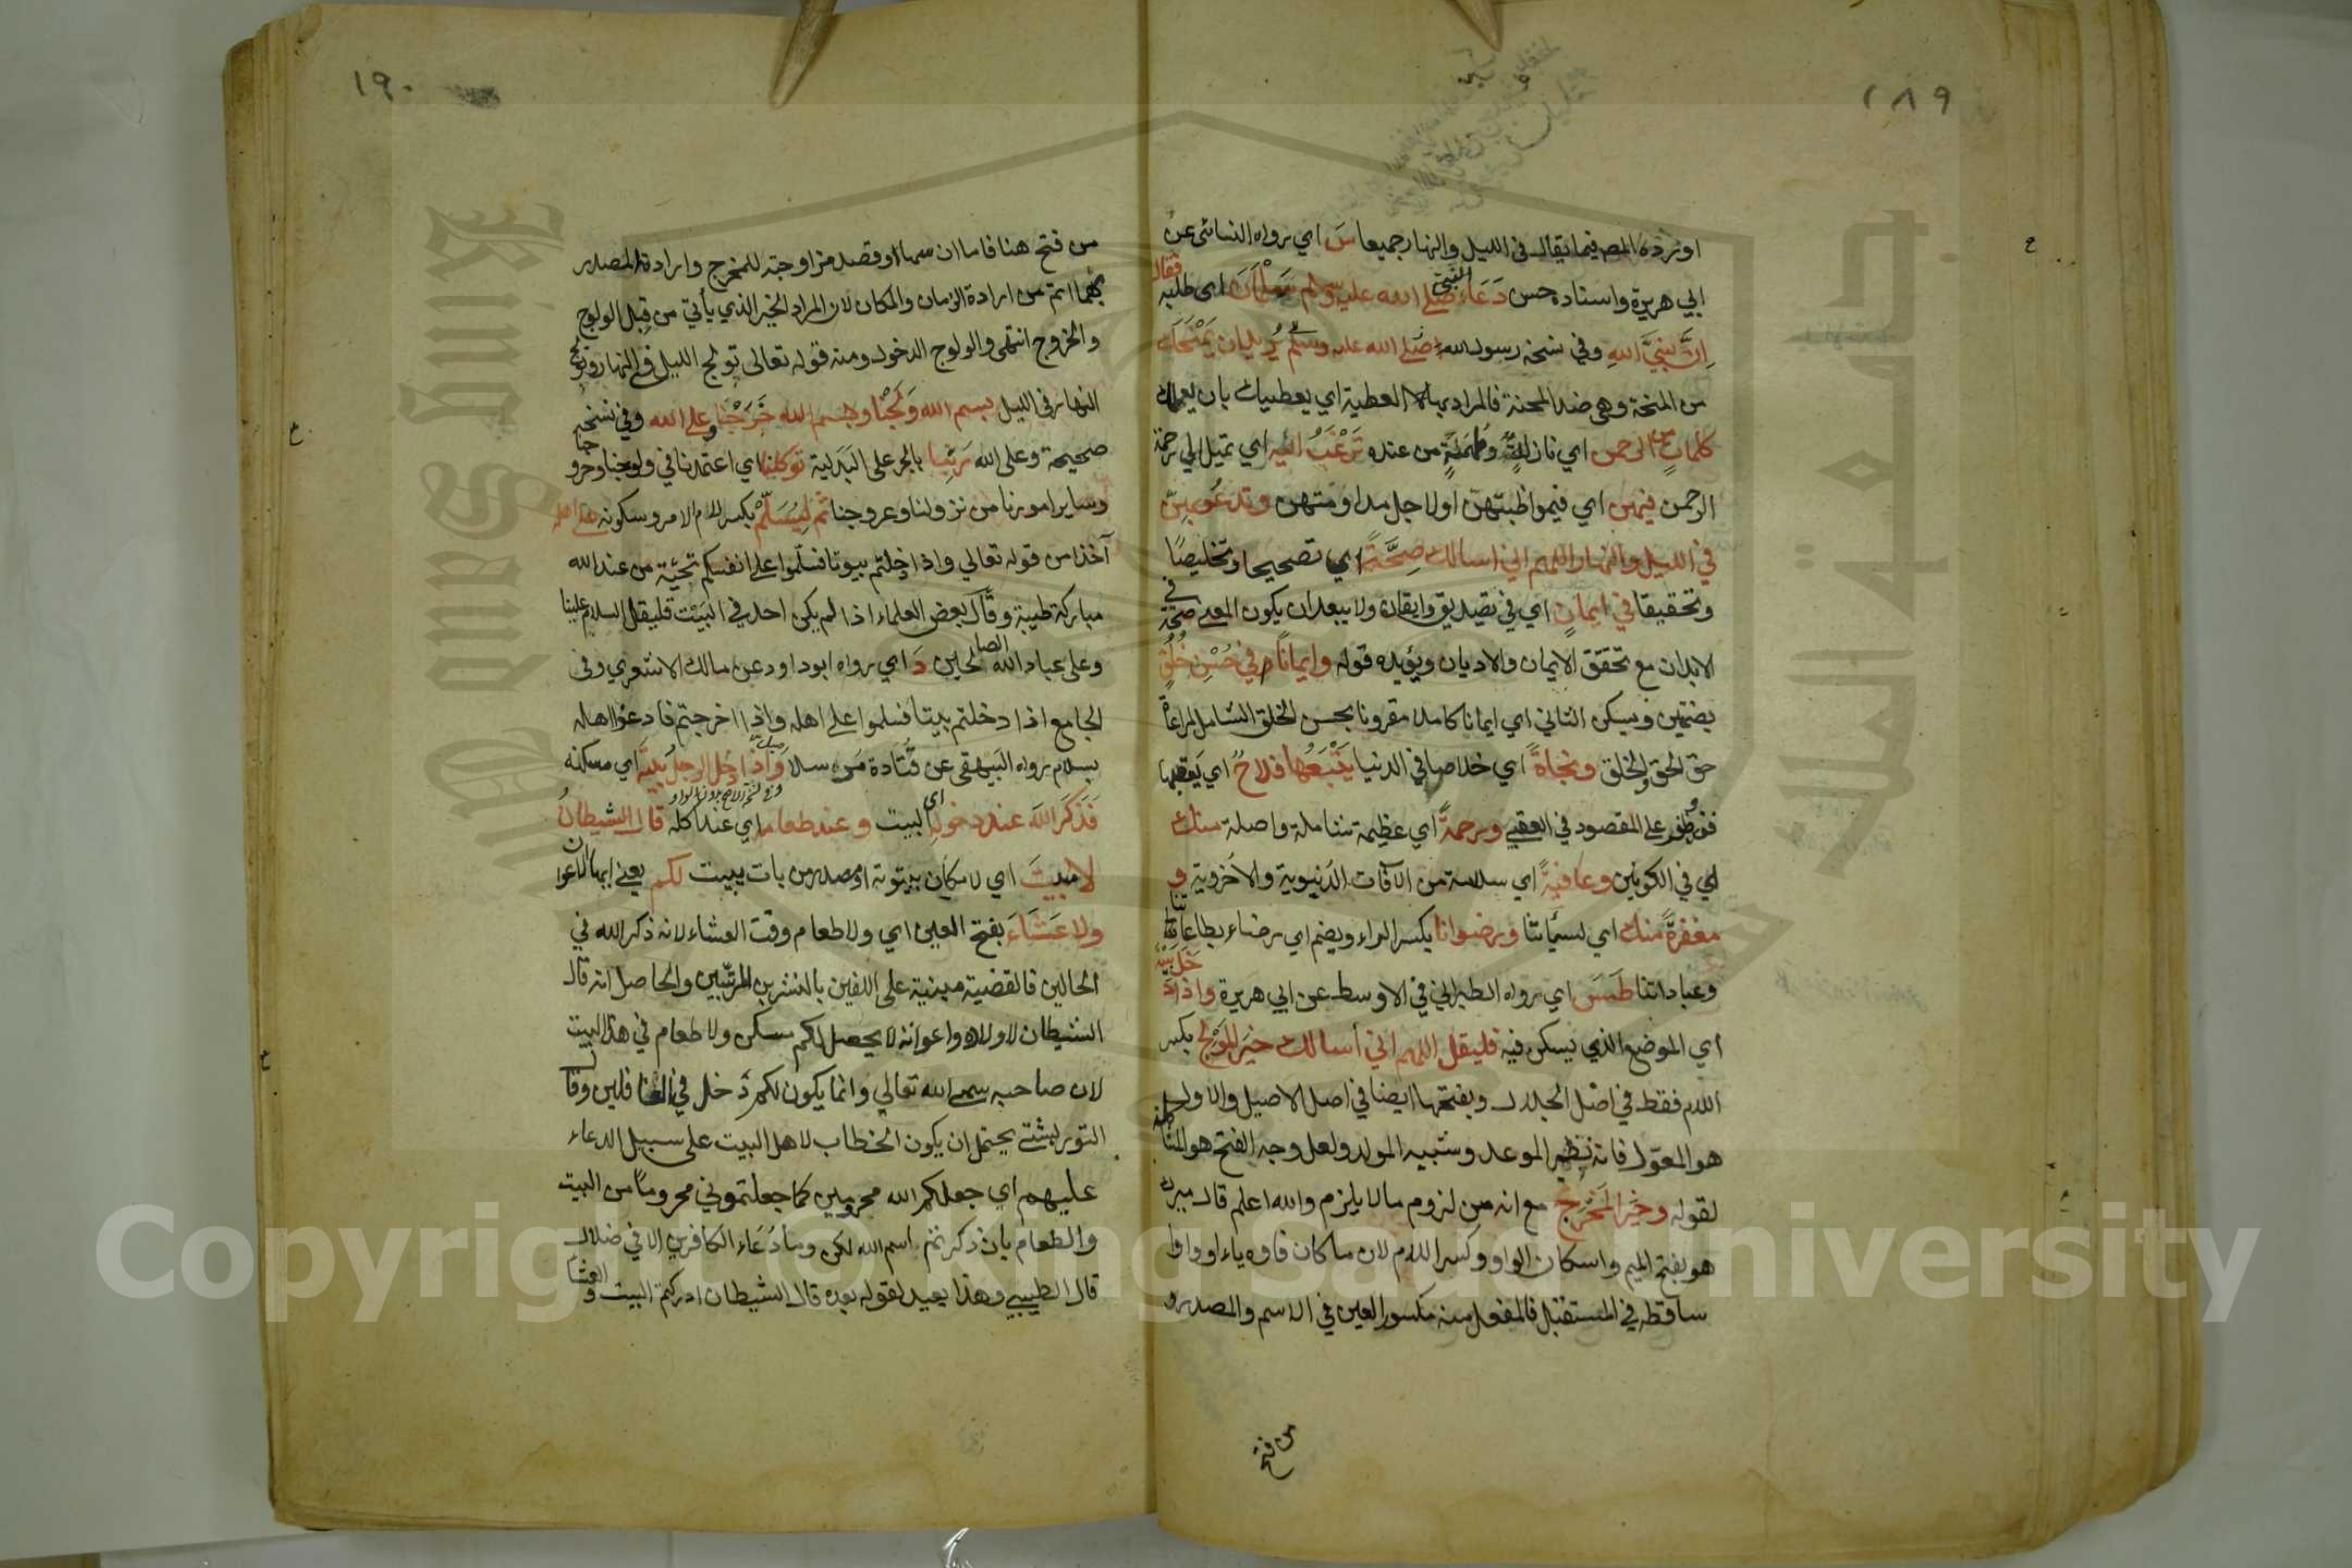 ١٨٩
اورده المص فيما يقال في الليل والنهار جميعا س اي رواه النسائي عن
ابي هريرة واسناده حسن دعاء النبي صلى الله عليه وسلم سلمان اي طلبه فقال
ان نبي الله وفي نسخة رسول الله صلى الله عليه وسلم يريد ان يمنحك
من المنحة وهي ضد المحنة فالمراد بها العطية اي يعطيك بان يعلمك
كلمات من الرحمن اي نازلة وملهمة من عنده ترغب اليه اي تميل الى رحمة
الرحمن فيهن اي في مواظبتهن او لاجل مداومتهن وتدعو بهن
في الليل والنهار اللهم اني اسالك صحة اي تصحيحا وتخليصا
وتحقيقا في ايمان اي في تصديق وايقان ولا يبعد ان يكون المعنى صحة في
الابدان مع تحقق الايمان والاديان ويؤيده قوله وايمانا في حسن خلق
بضمتين ويسكن الثاني اي ايمانا كاملا مقرونا بحسن الخلق الشامل لمراعاة
حق الحق والخلق ونجاة اي خلاصا في الدنيا يتبعها فلاح اي يعقبها
فوز وظفر على المقصود في العقبى ورحمة اي عظيمة شاملة واصلة منك
اي في الكونين وعافية اي سلامة من الآفات الدنيوية والاخروية و
مغفرة منك اي لسيأتنا ورضوانا بكسر الراء ويضم اي رضاء بطاعاتنا
وعباداتنا طس مس اي رواه الطبراني في الاوسط عن ابي هريرة واذا دخل بيته
اي الموضع الذي يسكن فيه فليقل اللهم اني أسالك خير المولج بكسر
اللام فقط في اصل الجلال وبفتحها ايضا في اصل الاصيل والاول
هو المعول فانه نظير الموعد وشبيه المولد ولعل وجه الفتح هو المشاكلة
لقوله وخير المخرج مع انه من لزوم مالا يلزم والله اعلم قال ميرك
هو بفتح الميم واسكان الواو وكسر اللام لان ما كان فاوه ياء او واوا
ساقطة في المستقبل فالمفعل منه مكسور العين في الاسم والمصدر و
من فتح
١٩٠
من فتح هنا فاما ان سها او قصد مزاوجته للمخرج وارادة المصدر
بهما اتم من ارادة الزمان والمكان لان المراد الخير الذي يأتي من قبل الولوج
والخروج انتهى والولوج الدخول ومنه قوله تعالى تولج الليل في النهار وتولج
النهار في الليل بسم الله ولجنا وبسم الله خرجنا وعلى الله وفي نسخة
صحيحة وعلى الله ربنا بالجر على البدلية توكلنا اي اعتمدنا في ولوجنا وخروجنا
وساير امورنا من نزولنا وعروجنا ثم ليسلم بكسر اللام الامر وسكونه على اهله
آخذا من قوله تعالى واذا دخلتم بيوتا فسلموا على انفسكم تحية من عند الله
مباركة طيبة وقال بعض العلماء اذا لم يكن احد في البيت فليقل السلام علينا
وعلى عباد الله الصالحين د اي رواه ابو داود عن مالك الاشعري وفي
الجامع اذا دخلتم بيتا فسلموا على اهله واذا خرجتم فاودعوا اهله
بسلام رواه البيهقي عن قتادة مرسلا واذا دخل الرجل بيته اي مسكنه
فذكر الله عند دخوله اي البيت وعند طعامه اي عند اكله قال الشيطان
لا مبيت اي لا مكان بيتوتة او مصدر من بات يبيت لكم يعني ايها الاعوان
ولا عشاء بفتح العين اي ولا طعام وقت العشاء لانه ذكر الله في
الحالين فالقضية مبنية على اللفين بالنشرين المرتبين والحاصل انه قال
الشيطان لاولاده واعوانه لا يحصل لكم مسكن ولا طعام في هذا البيت
لان صاحبه سمى الله تعالى وانما يكون لكم دخل في الغافلين وقال
التوربشتي يحتمل ان يكون الخطاب لاهل البيت على سبيل الدعاء
عليهم اي جعلكم الله محرومين كما جعلتموني محروما من البيت
والطعام بان ذكرتم اسم الله لكن وما دعاء الكافرين الا في ضلال
قال الطيبي وهذا بعيد لقوله بعده قال الشيطان ادركتم البيت والعشاء
King Saud University
جامعة الملك سعود
Copyright © King Saud University